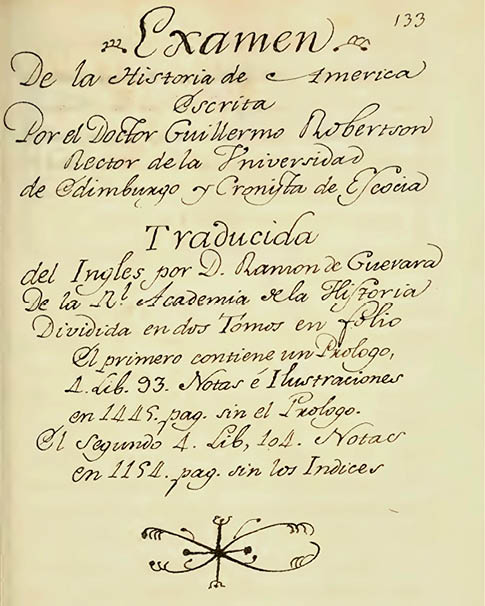 133
Examen
De la Historia de America
Escrita
Por el Doctor Guillermo Robertson
Rector de la Vniversidad
de Edimburgo y Cronista de Escocia
Traducida
del Ingles por D. Ramon de Guevara
De la Rl. Academia de la Historia
Dividida en dos Tomos en folio
El primero contiene un Prologo,
4. Lib. 93. Notas é Ilustraciones
en 1445. pag. sin el Prologo.
El segundo 4. Lib, 104. Notas
en 1154. pag. sin los Indices